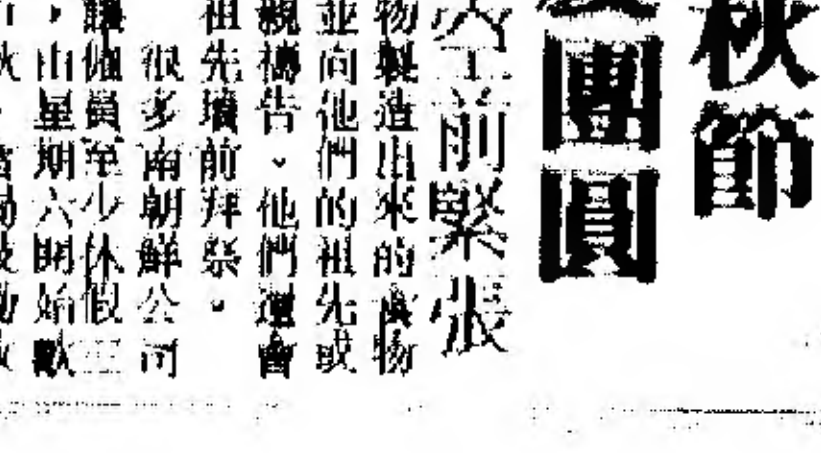 秋節
團圓
空前緊張
物製造出來的食物
並向他們的祖先或
親禱告。他們還會
祖先墳前拜祭。
很多南朝鮮公司
讓僱員至少休假三
，由星期六開始歡